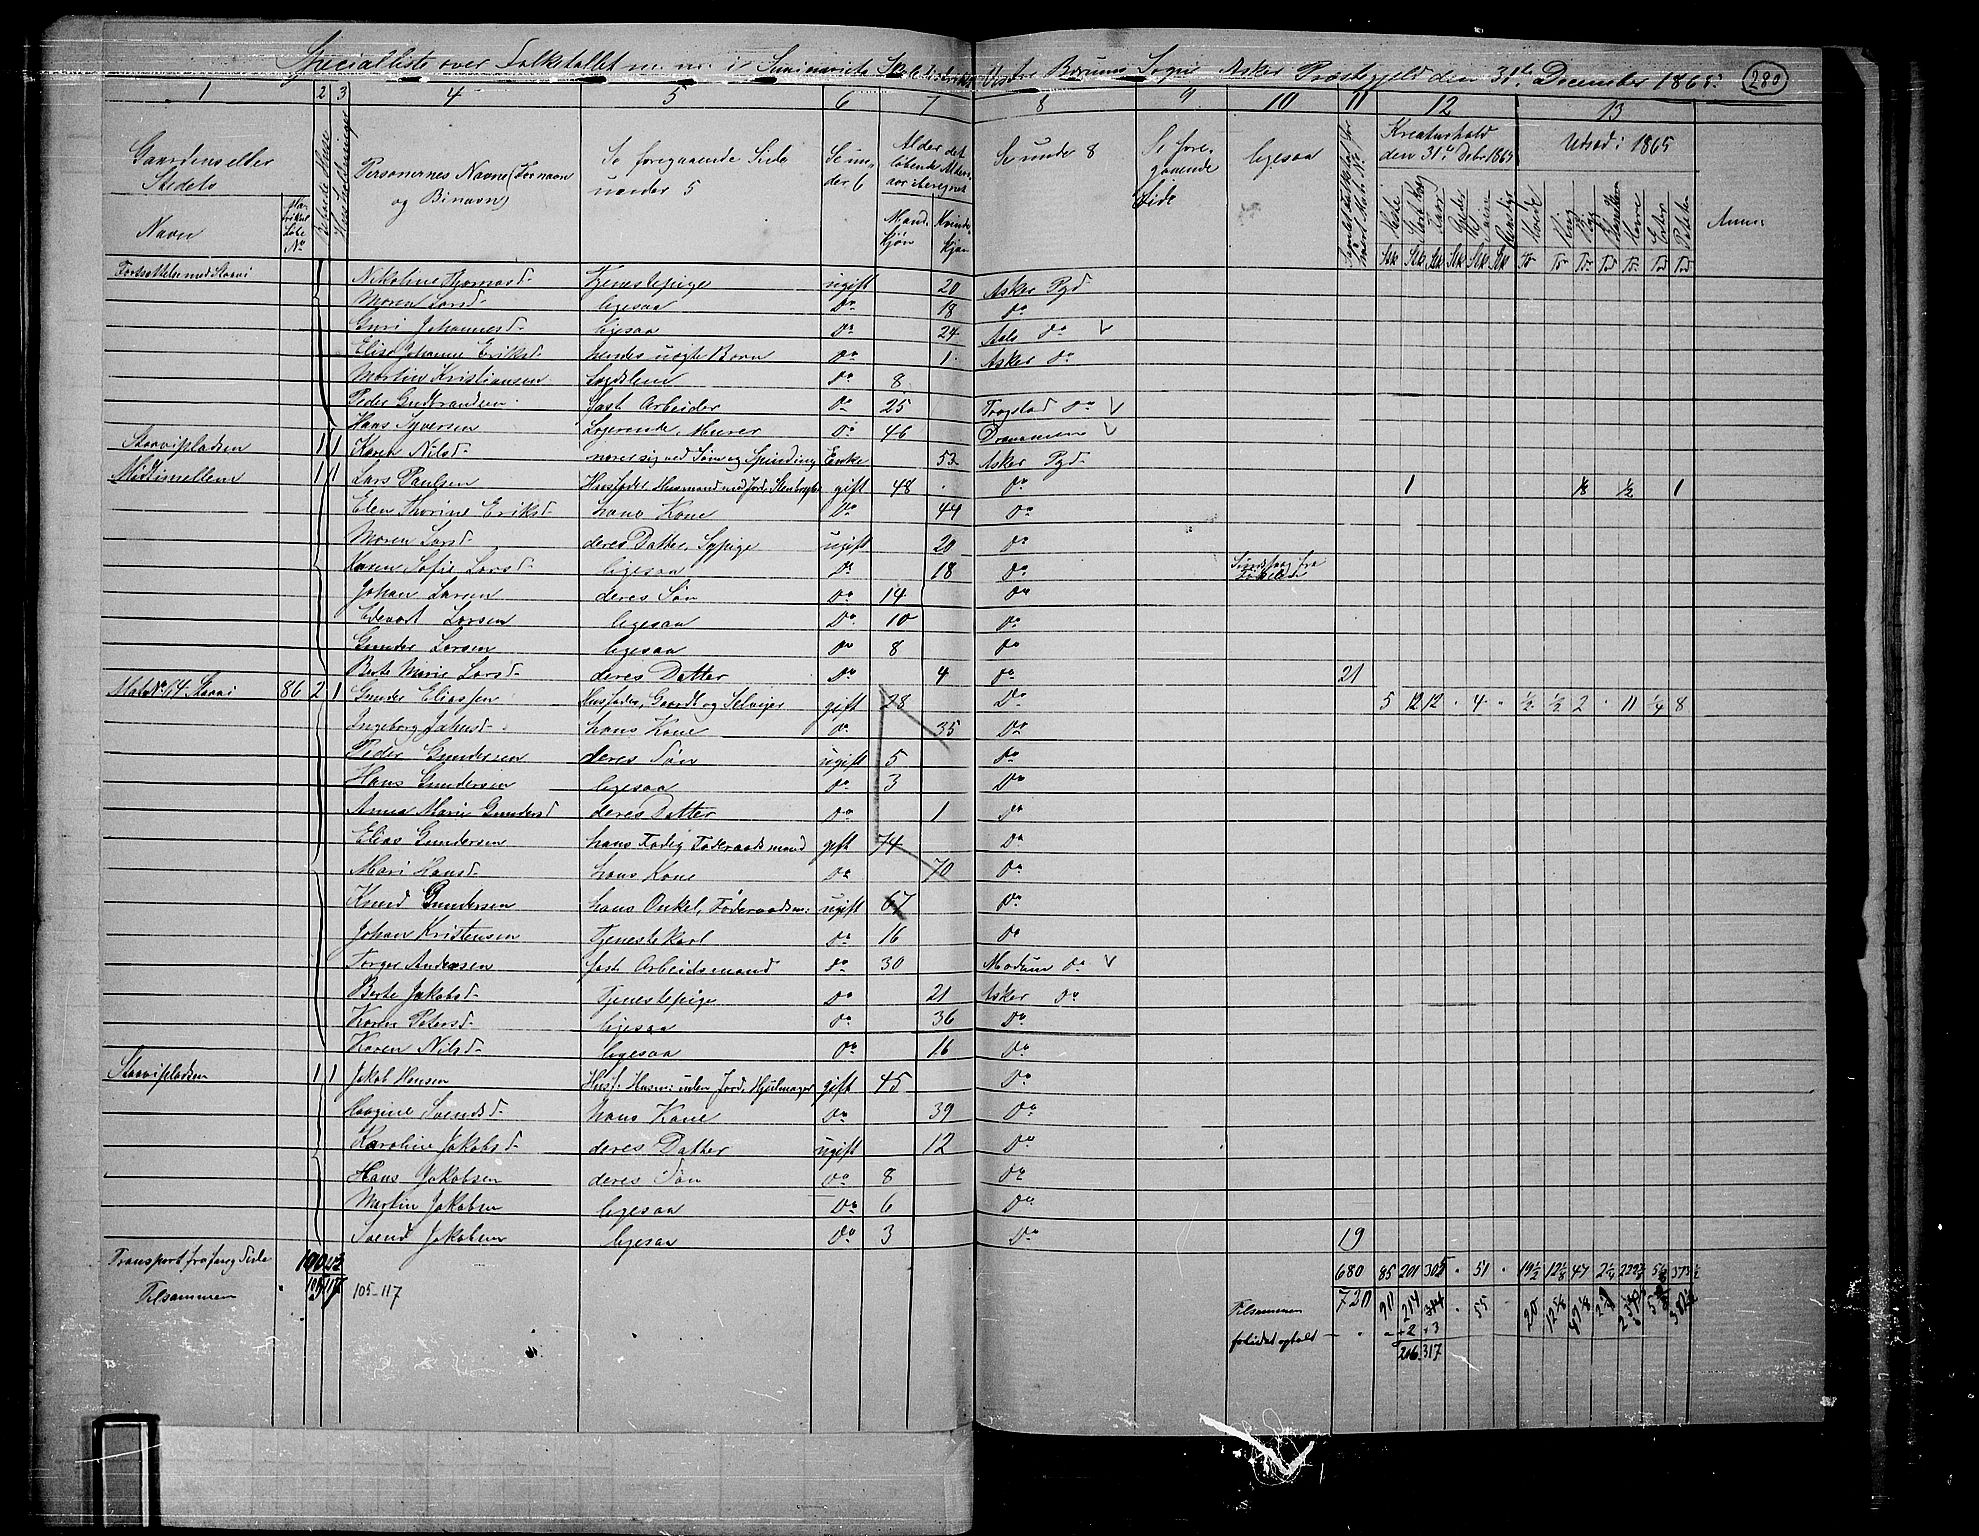 Specialliste over Folketallet m. m. i Seminariets Skoledistrikt Vestre Bærums Sogn Asker Præstegjeld den 31te December 1865. 280
1 2 3 4 5 6 7 8 9 10 11 12 13
Gaardens eller Stedets
Navn
Matrikul Løbe No
Beboede Huse
Husholdninger
Personernes Navne (Fornavn og Binavn)
Se foregaaende Side under 5
Se under 6
Alder det løbende Alders aar iberegnet
Mandkjøn
Kvindekjøn
Se under 8
Se foregaaende Side
ligesaa
Kreaturhold den 31te Decbr 1865
Udsæd i 1865
Heste
Stort Kvæg
Faar
Gjeder
Svin
Rensdyr
Hvede
Byg
Rug
Havre
Erter
Poteter
Anm:
Fortsættelse med Staavi
Nikoline Thomasd. Tjenestepige ugift 20 Asker Pgd
Maren Larsd. ligesaa do 18 do
Guri Johannesd. ligesaa do 24 Aals do
Elise Johanne Eriksd. hendes uægte Barn do 1 Asker do
Martin Kristiansen Lægdslem do 8
Peder Gudbrandsen fast Arbeider do 25 Trøgstad do
Hans Syversen Logerende, Murer do 46 Drammen
Staavipladsen 1 1 Karen Nilsd. nærer sig ved Søm og Spinding Enke 53 Asker Pgd.
Midtimellem 1 1 Lars Paulsen Husfader, Husmand med Jord, Stenbryder gift 48 do 1 1/8 1/2 1
Elen Thorine Eriksd. hans Kone do 44 do
Maren Larsd. deres Datter, Sypige ugift 20 do
Karen Sofie Larsd. ligesaa do 18 do
Johan Larsen deres Søn do 14 do
Edevart Larsen ligesaa do 10 do
Gunder Larsen ligesaa do 8 do
Berte Marie Larsd. deres Datter do 4 do 21
Mat No 14 Staavi 86 2 1 Gunder Eliassen Husfader, Gaardb. og Selveier gift 28 do 5 12 12 . 4 . 1/2 1/2 2 . 11 1/4 8
Ingeborg Johansd. hans Kone do 35 do
Peder Gundersen deres Søn ugift 5 do
Hans Gundersen ligesaa do 3 do
Anna Marie Gundersd deres Datter do 1 do
Elias Gundersen hans Fader, Føderaadsmand gift 74 do
Mari Hansd. hans Kone do 70 do
Knud Gundersen hans Onkel, Føderaadsm: ugift 67 do
Johan Kristensen Tjenestekarl do 16 do
Torger Andersen fast Arbeidsmand do 30 Modum do
Berte Jakobsd. Tjenestepige do 21 Asker do
Karen Petersd. ligesaa do 36 do
Karen Nilsd. ligesaa do 16 do
Staavipladsen 1 1 Jakob Hansen Husf. Husm: uden Jord, Hjulmager gift 45 do
Haagine Svendsd. hans Kone do 39 do
Karoline Jakobsd. deres Datter ugift 12 do
Hans Jakobsen deres Søn do 8 do
Martin Jakobsen ligesaa do 6 do
Svend Jakobsen ligesaa do 3 do 19
Transport fra foreg Side 680 85 201 305 . 51 . 19 1/2 12 1/8 47
Tilsammen 105-117 Tilsammen 720 90 214 . 55 20
216 317